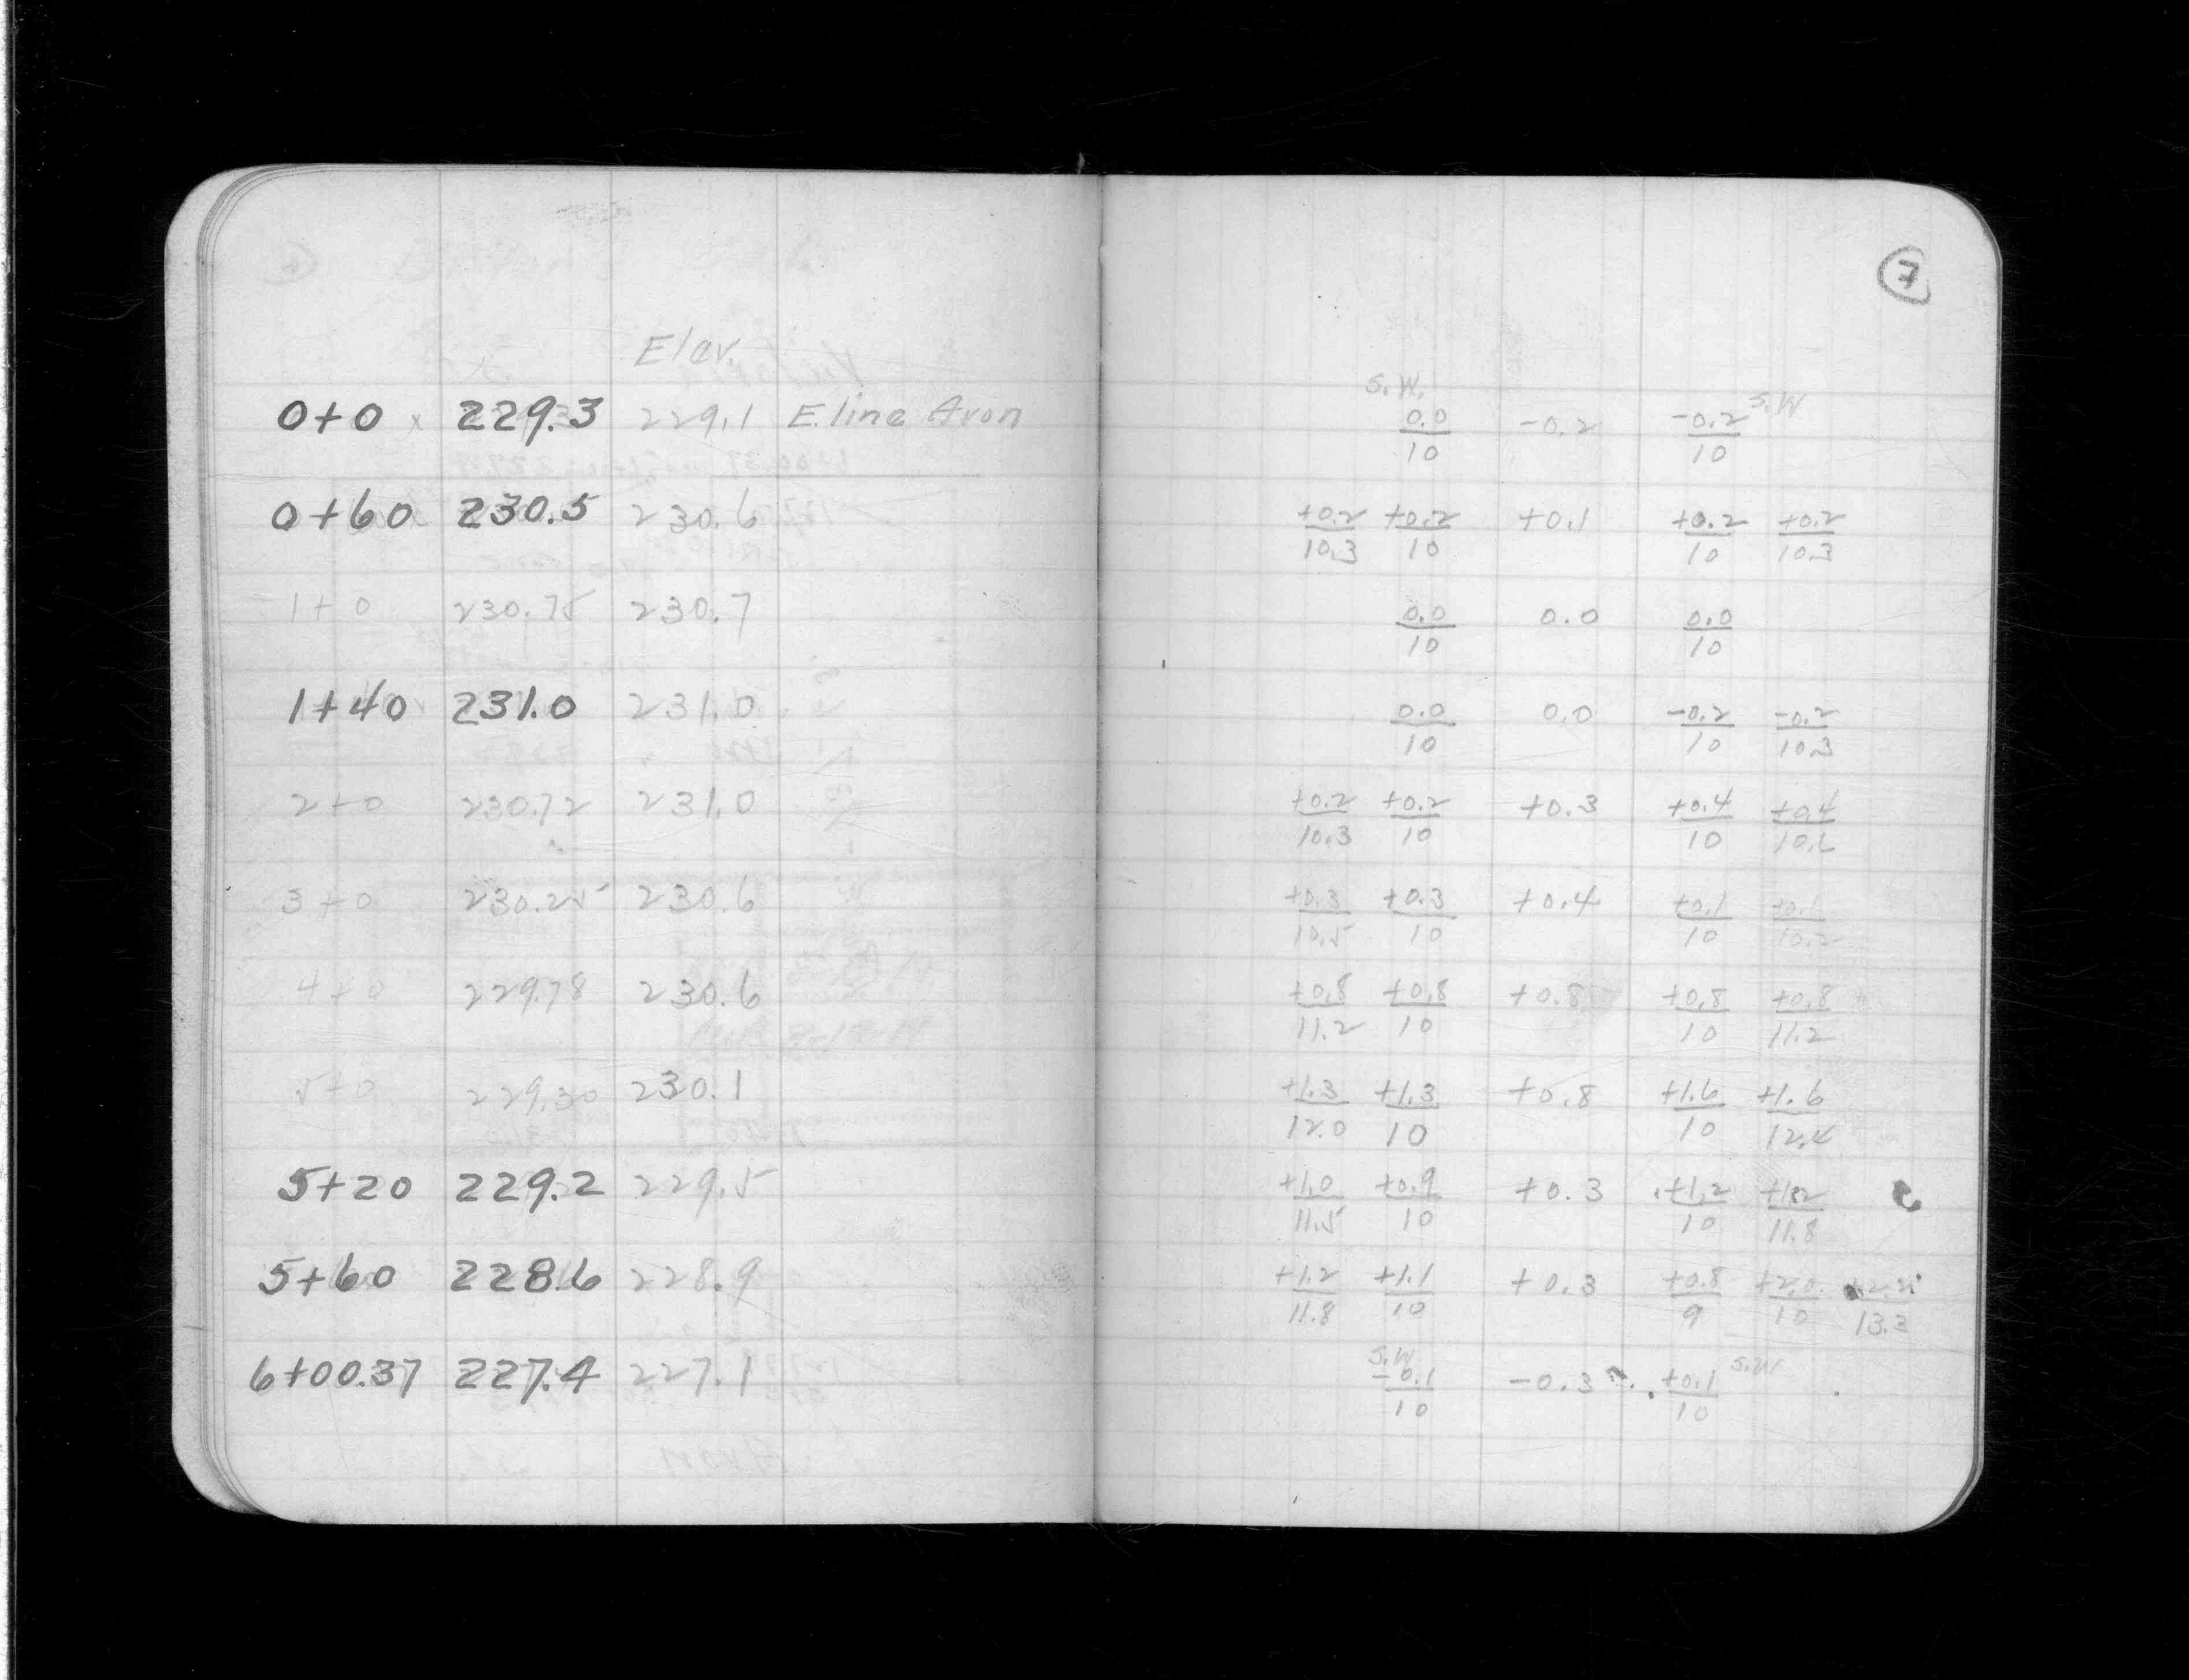 7
Elev.
S.W.
0+0 x 229.3 229.1 E. line Avon 0.0/10 -0.2 -0.2/10 S.W
0+60 230.5 230.6 +0.2/10.3 +0.2/10 +0.1 +0.2/10 +0.2/10.3
1+0 230.75 230.7 0.0/10 0.0 0.0/10
1+40 231.0 231.0 0.0/10 0.0 -0.2/10 -0.2/10.3
2+0 230.72 231.0 +0.2/10.3 +0.2/10 +0.3 +0.4/10 +0.4/10.6
3+0 230.25 230.6 +0.3/10.5 +0.3/10 +0.4 +0.1/10 +0.1/10.2
4+0 229.78 230.6 +0.8/11.2 +0.8/10 +0.8 +0.8/10 +0.8/11.2
5+0 229.30 230.1 +1.3/12.0 +1.3/10 +0.8 +1.6/10 +1.6/12.4
5+20 229.2 229.5 +1.0/11.5 +0.9/10 +0.3 +1.2/10 +1.2/11.8
5+60 228.6 228.9 +1.2/11.8 +1.1/10 +0.3 +0.8/9 +2.0/10 +2.2/13.3
S.W S.W
6+00.37 227.4 227.1 -0.1/10 -0.3 +0.1/10